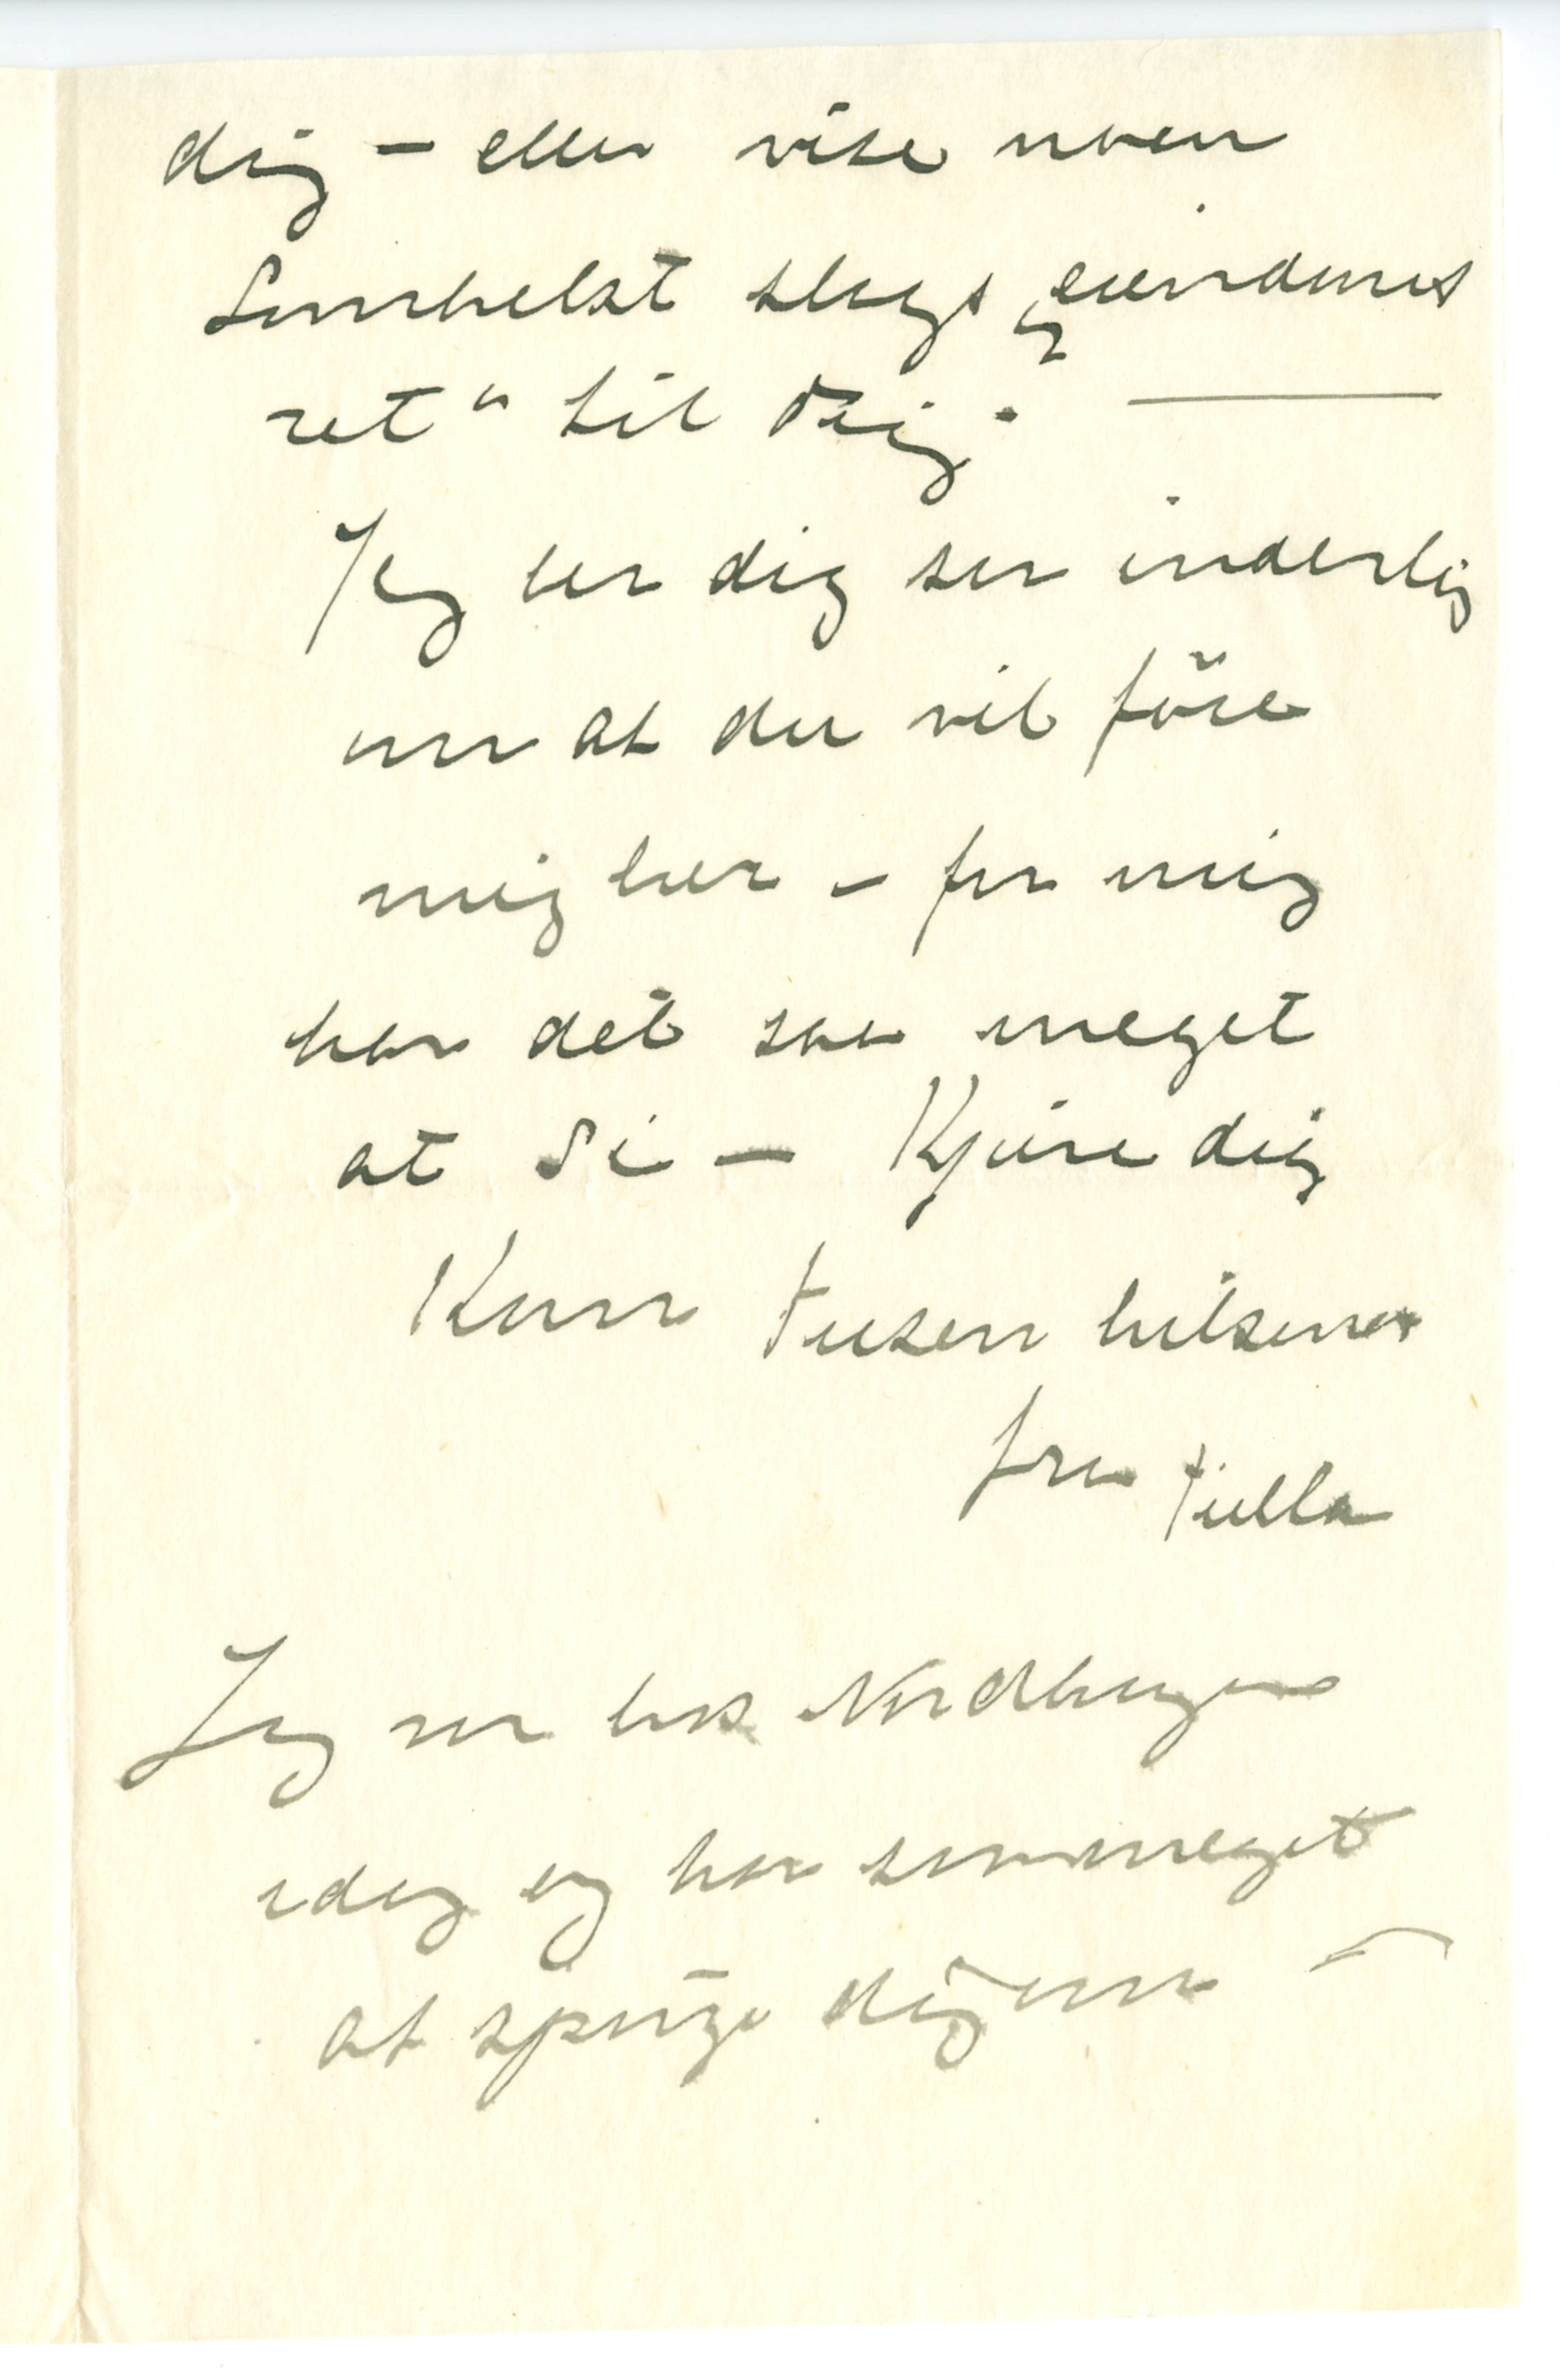 dig – eller vise noen
somhelst slags „eiendoms
ret“ til dig. —
Jeg ber dig saa inderlig
om at du vil föie
mig her – for mig
har det saa meget
at si – Kjære dig
Kun tusen hilsener
fra Tulla
Jeg var hos Nordhagens
idag og har saa meget
at spörge dig om –